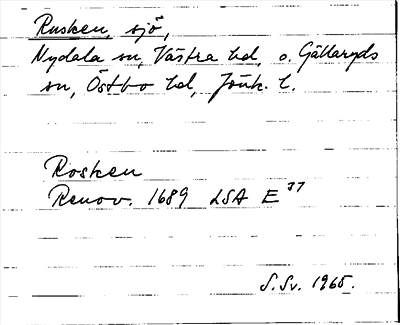 Rusken, sjö,
Nydala sn, Västra hd, o. Gällaryds
sn, Östbo hd, Jönk. l.
Rosken
Renov. 1689 LSA E 37
S. Sv. 1965.